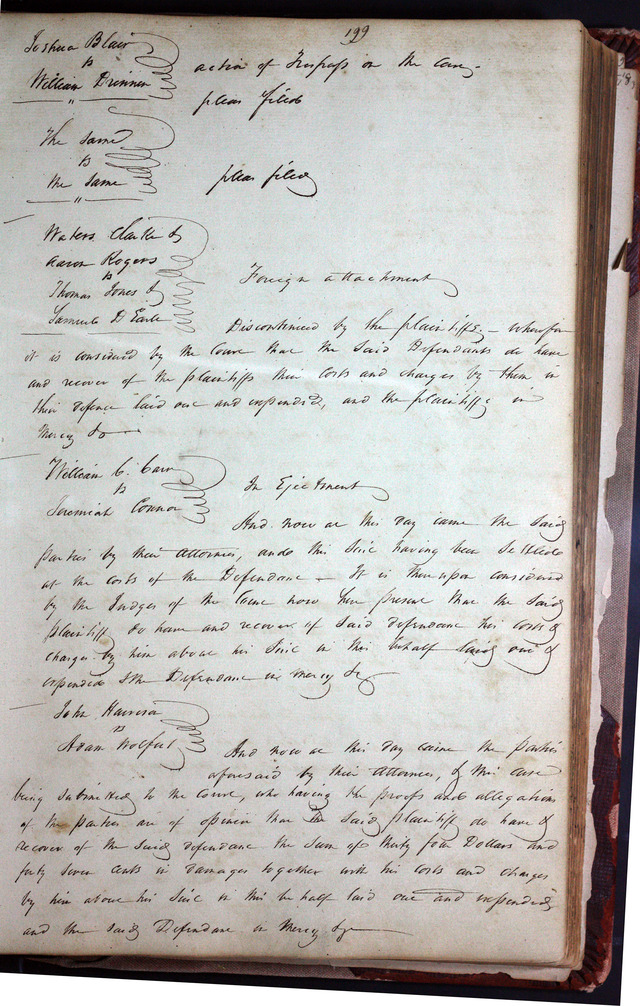 199
Joshua Blair
vs
William Drinnen
action of Trespass on the case,
pleas filed
The same
vs
the same
pleas filed
Waters Clark &
Aaron Rogers
vs
Thomas Jones &
Samuel D Earl
Foreign attachment
Discontinued by the plaintiffs – wherefore
it is considered by the Court that the said Defendants do have
and recover of the plaintiffs their Costs and charges by them in
their defence laid out and expended, and the plaintiffs in
Mercy &c
William C. Carr
vs
Jeremiah Connor
In Ejectment
And now at this day came the said
parties by their attornies, and this suit having been settled
at the costs of the Defendant – It is thereupon considered
by the Judges of the Court now here present that the said
plaintiff do have and recover of said defendant his costs &
charges by him about his suit in this behalf laid out &
expended & the Defendant in mercy &c
John Harrison
vs
Adam Wolfert
And now at this day came the parties
aforesaid by their attornies, & this case
being submitted to the Court, who having the proofs and allegations
of the parties are of opinion that the said plaintiff do have &
recover of the said defendant the sum of thirty four Dollars and
forty seven cents in damages together with his costs and charges
by him about his suit in this behalf laid out and expended,
and the said Defendant in Mercy &c